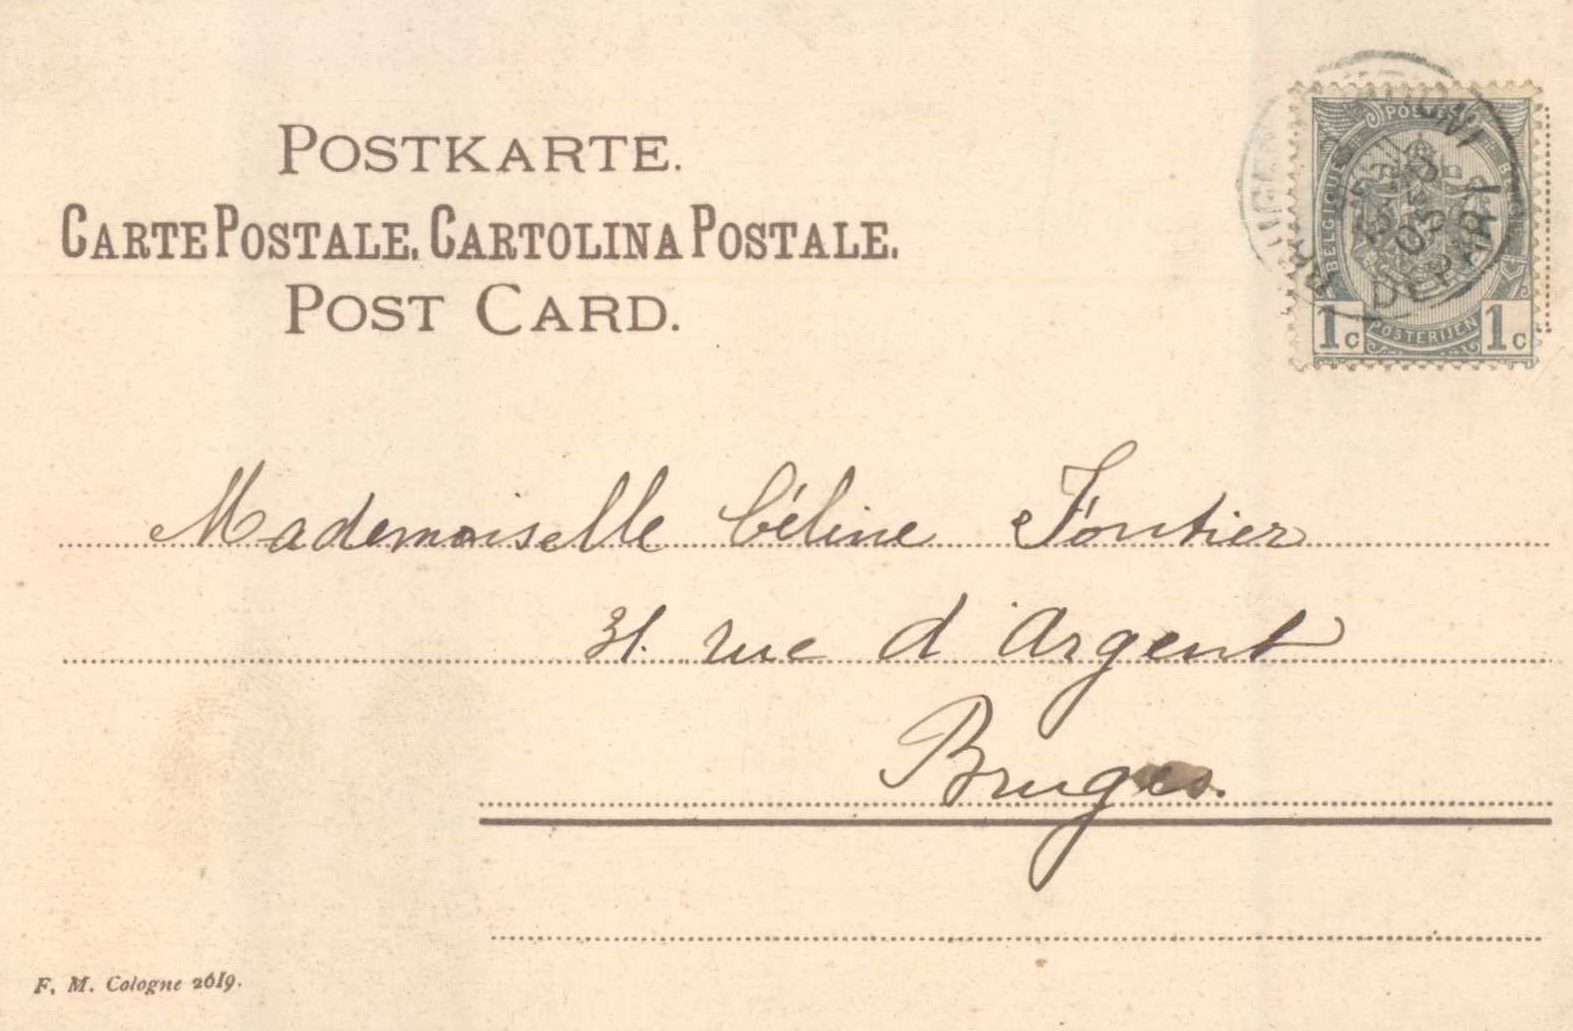 POSTKARTE.
CARTE POSTALE. CARTOLINA POSTALE.
POST CARD.
BELGIQUE
POSTERIJEN
1c 1c
DEPART
Mademoiselle Céline
31. rue d'Argent
Bruges.
F. M. Cologne 2619.